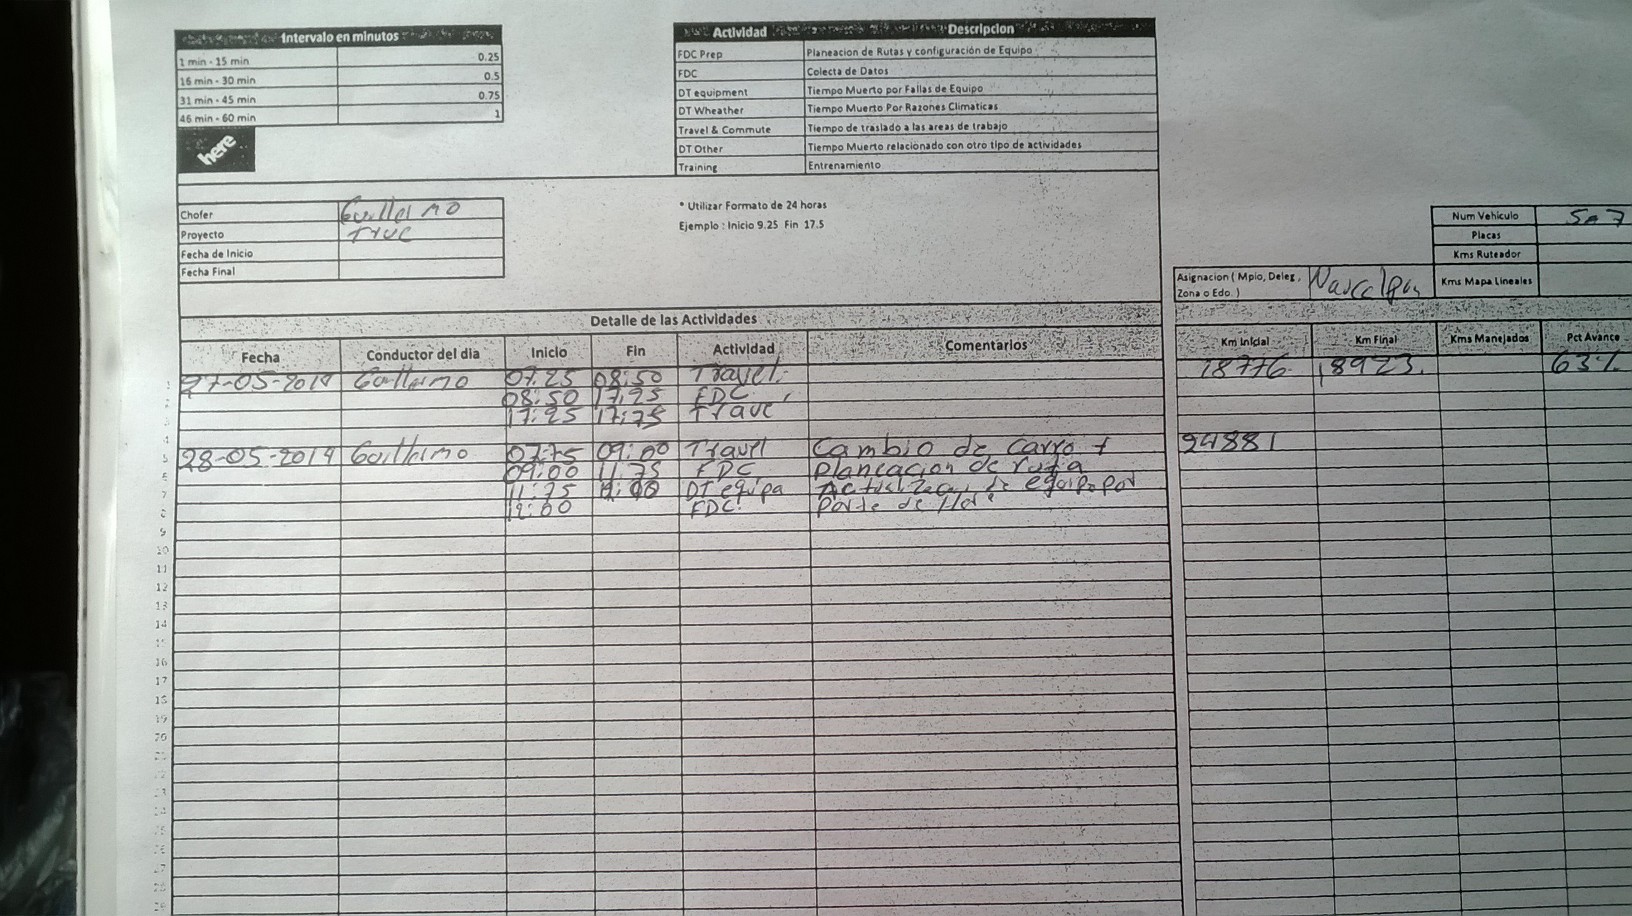 Intervalo en minutos
1 min - 15 min 0.25
16 min - 30 min 0.5
31 min - 45 min 0.75
46 min - 60 min 1
here
Actividad Descripcion
FDC Prep Planeacion de Rutas y configuración de Equipo
FDC Colecta de Datos
DT equipment Tiempo Muerto por Fallas de Equipo
DT Wheather Tiempo Muerto Por Razones Climaticas
Travel & Commute Tiempo de traslado a las areas de trabajo
DT Other Tiempo Muerto relacionado con otro tipo de actividades
Training Entrenamiento
Chofer Guillermo
Proyecto True
Fecha de Inicio
Fecha Final
* Utilizar Formato de 24 horas
Ejemplo : Inicio 9.25 Fin 17.5
Num Vehiculo
Placas
Kms Ruteador
Kms Mapa Lineales
Asignacion ( Mpio, Deleg ,
Zona o Edo. ) Naucalpan
Detalle de las Actividades
Fecha Conductor del dia Inicio Fin Actividad Comentarios Km Inicial Km Final Kms Manejados Pct Avance
1 27-05-2019 Guillermo 07.25 08:50 Travel 18776 18923 63%
2 08:50 17,25 FDC
3 17:25 17:75 Trave
4
5 28-05-2019 Guillermo 07:75 09:00 Travel Cambio de carro + 24881
6 09:00 11,75 FDC planeacion de ruta
7 11:75 DT equipo de equipo por
8 12:00 FDC. parte de
9
10
11
12
13
14
16
17